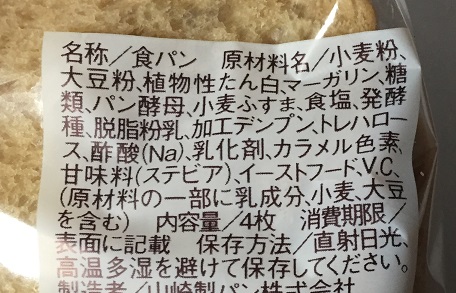 名称／食パン　原材料名／小麦粉、
大豆粉、植物性たん白、マーガリン、糖
類、パン酵母、小麦ふすま、食塩、発酵
種、脱脂粉乳、加工デンプン、トレハロー
ス、酢酸(Na)、乳化剤、カラメル色素、
甘味料(ステビア)、イーストフード、V.C、
(原材料の一部に乳成分、小麦、大豆
を含む)　内容量／4枚　消費期限／
表面に記載　保存方法／直射日光、
高温多湿を避けて保存してください。
製造者／山崎製パン株式会社